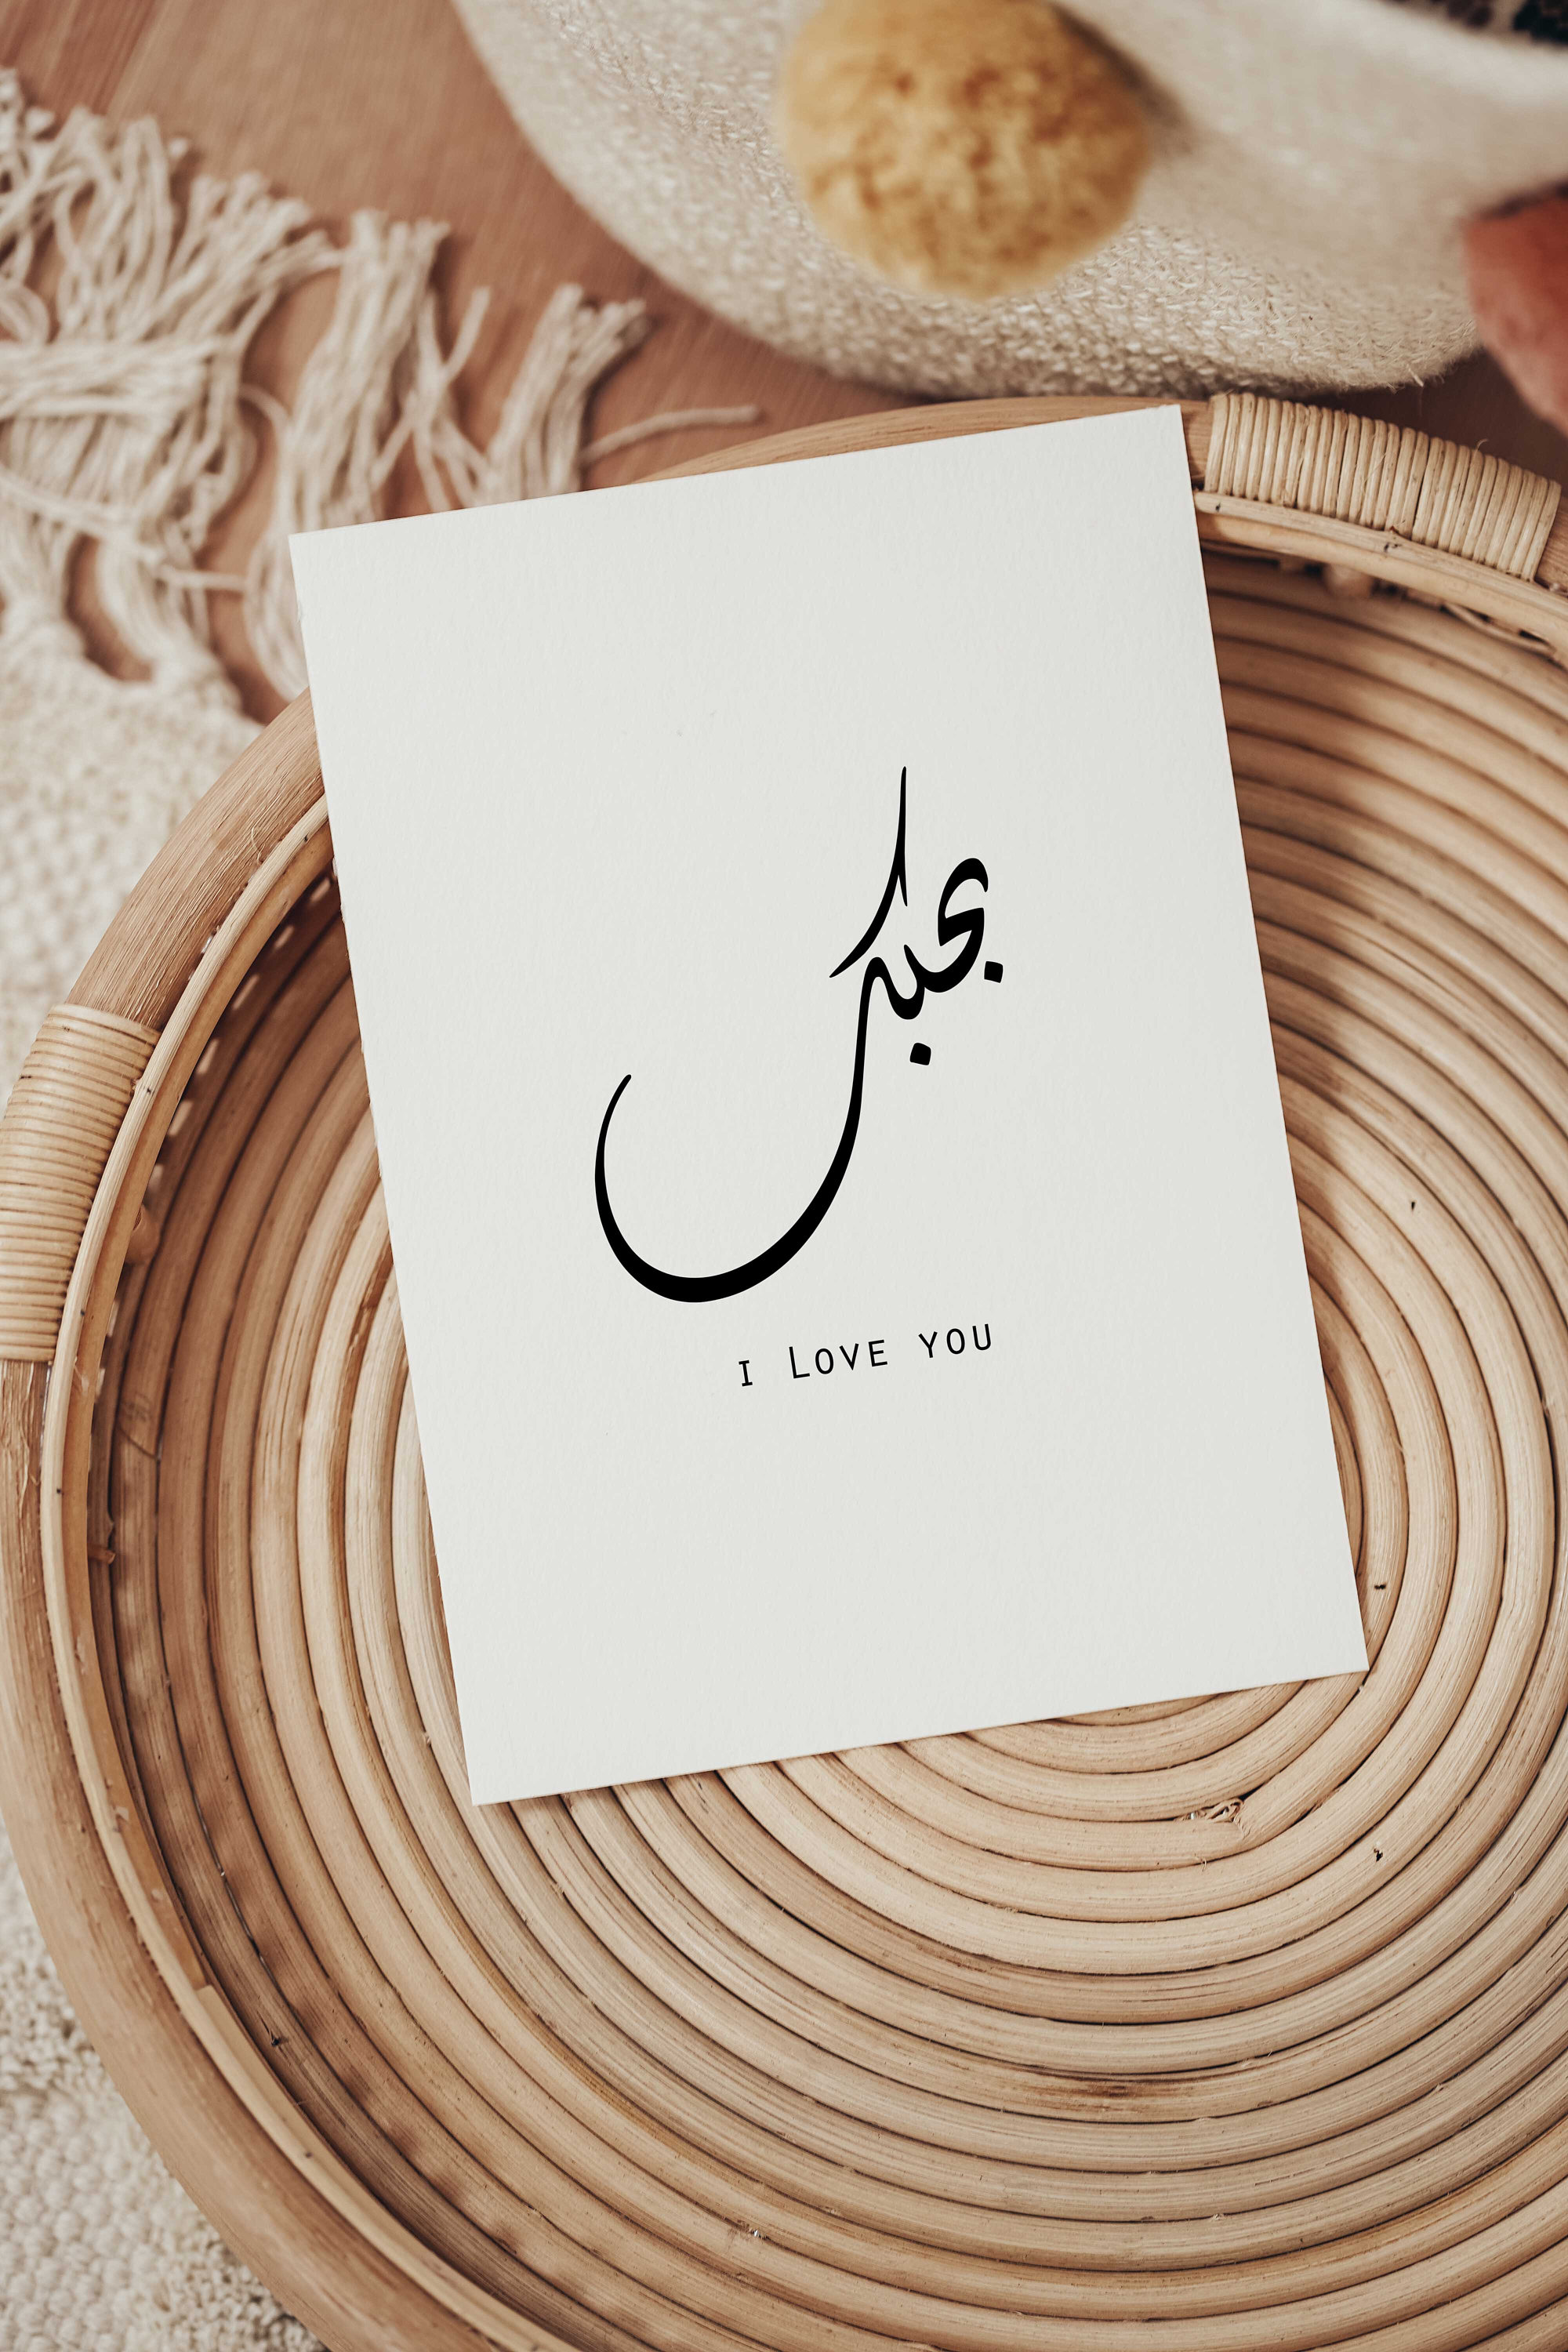 بحبك
I LOVE YOU